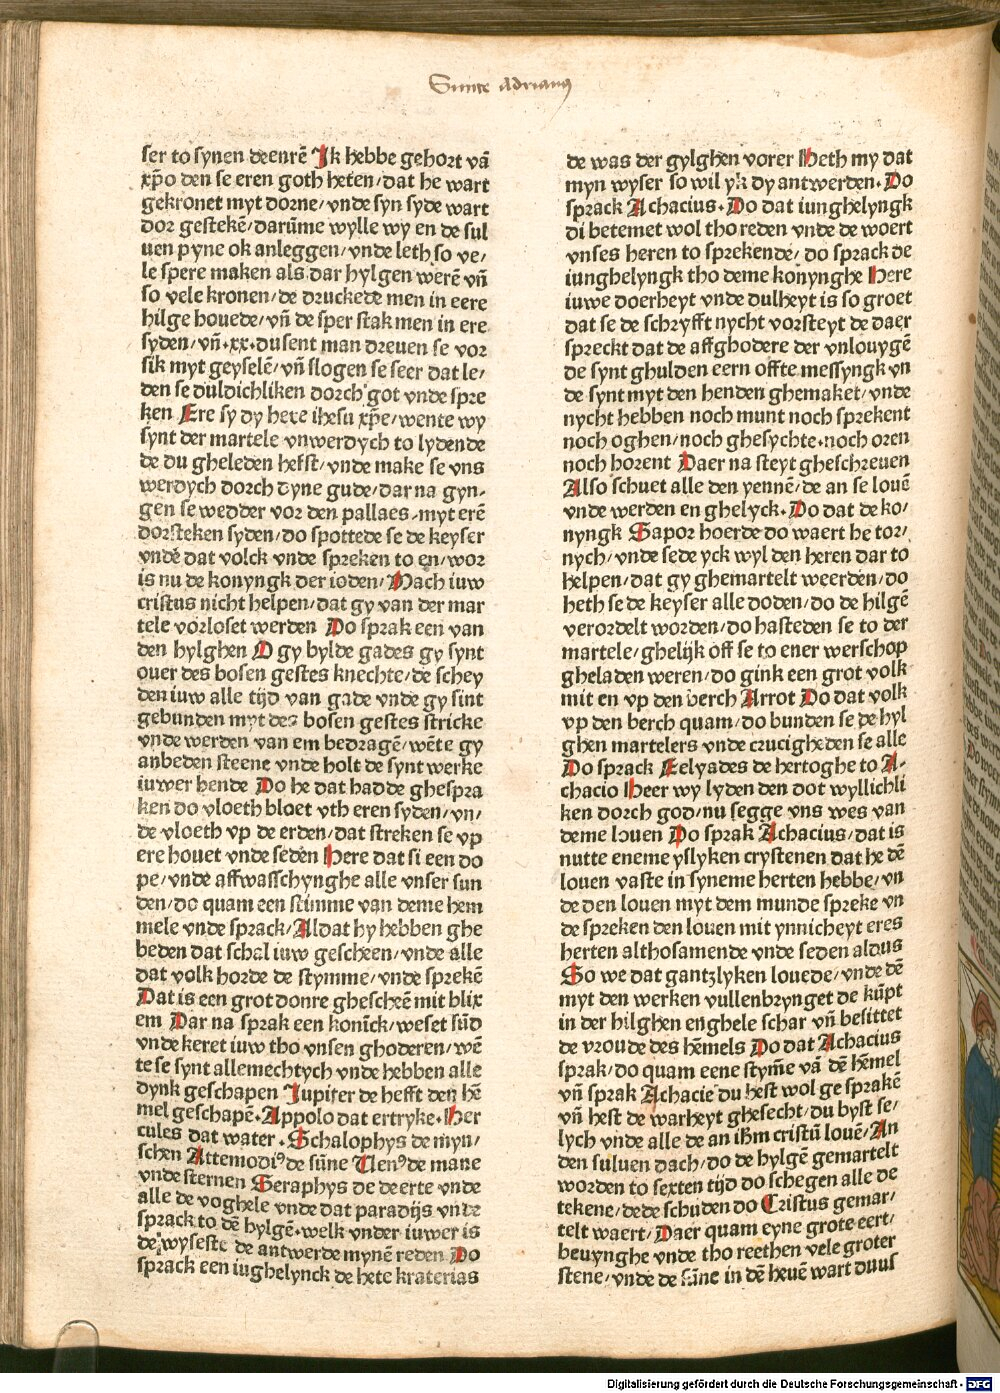 Sunte adrianus
ser to synen deenrē Ik hebbe gehort vā
xp̄o den se eren goth heten/dat he wart
gekronet myt dorne/vnde syn syde wart
dor gestekē/darūme wylle wy en de sul
uen pyne ok anleggen/vnde leth so ve/
le spere maken als dar hylgen werē vñ
so vele kronen/de druckede men in eere
hilge houede/vñ de sper stak men in ere
syden/vñ·xx·dusent man dreuen se vor
sik myt geyselē/vñ slogen se seer dat le/
den se duldichliken dorch got vnde spre
ken Ere sy dy here ihesu xp̄e/wente wy
synt der martele vnwerdych to lydende
de du gheleden hefst/vnde make se vns
werdych dorch dyne gude/dar na gyn/
gen se wedder vor den pallaes/myt erē
dorsteken syden/do spottede se de keyser
vnde dat volck vnde spreken to en/wor
is nu de konyngk der ioden/Mach iuw
cristus nicht helpen/dat gy van der mar
tele vorloset werden Do sprak een van
den hylghen O gy bylde gades gy synt
ouer des bosen gestes knechte/de schey
den iuw alle tijd van gade vnde gy sint
gebunden myt des bosen gestes stricke
vnde werden van em bedragē/wēte gy
anbeden steene vnde holt de synt werke
iuwer hende Do he dat hadde ghespra
ken do vloeth bloet vth eren syden/vn/
de vloeth vp de erden/dat streken se vp
ere houet vnde seden Here dat si een do
pe/vnde affwasschynghe alle vnser sun
den/do quam een stimme van deme hem
mele vnde sprack/Aldat hy hebben ghe
beden dat schal iuw gescheen/vnde alle
dat volk horde de stymme/vnde sprekē
Dat is een grot donre ghescheē mit blix
em Dar na sprak een konīck/weset sūd
vnde keret iuw tho vnsen ghoderen/wē
te se synt allemechtych vnde hebben alle
dynk geschapen Jupiter de hefft den hē
mel geschapē·Appolo dat ertryke·Her
cules dat water·Schalophys de myn/
schen Attemodiꝰ de sūne Uenꝰ de mane
vnde sternen Seraphys de de erte vnde
alle de voghele vnde dat paradijs vnde
sprack to dē hylgē·welk vnder iuwer is
de wyseste de antwerde mynē reden Do
sprack een iughelynck de hete kraterias
de was der gylghen vorer Heth my dat
myn wyser so wil yk dy antwerden·Do
sprack Achacius·Do dat iunghelyngk
di betemet wol tho reden vnde de woert
vnses heren to sprekende/do sprack de
iunghelyngk tho deme konynghe Here
iuwe doerheyt vnde dulheyt is so groet
dat se de schryfft nycht vorsteyt de daer
spreckt dat de affghodere der vnlouygē
de synt ghulden eern offte messyngk vn
de synt myt den henden ghemaket/vnde
nycht hebben noch munt noch sprekent
noch oghen/noch ghesychte·noch oren
noch horent Daer na steyt gheschreuen
Also schuet alle den yennē/de an se louē
vnde werden en ghelyck·Do dat de ko/
nyngk Sapor hoerde do waert he tor/
nych/vnde sede yck wyl den heren dar to
helpen/dat gy ghemartelt weerden/do
heth se de keyser alle doden/do de hilgē
verordelt worden/do hasteden se to der
martele/ghelijk off se to ener werschop
gheladen weren/do gink een grot volk
mit en vp den berch Arrot Do dat volk
vp den berch quam/do bunden se de hyl
ghen martelers vnde crucigheden se alle
Do sprack Eelyades de hertoghe to A/
chacio Heer wy lyden den dot wyllichli
ken dorch god/nu segge vns wes van
deme louen Do sprak Achacius/dat is
nutte eneme yslyken crystenen dat he dē
louen vaste in syneme herten hebbe/vn
de den louen myt dem munde spreke vn
de spreken den louen mit ynnicheyt eres
herten althosamende vnde seden aldus
So we dat gantzlyken louede/vnde dē
myt den werken vullenbrynget de kūpt
in der hilghen enghele schar vñ besittet
de vroude des hēmels Do dat Achacius
sprak/do quam eene stym̄e vā dē hēmel
vñ sprak Achacie du hest wol ge sprakē
vñ hest de warheyt ghesecht/du byst se/
lych vnde alle de an ihm cristū louē/An
den suluen dach/do de hylgē gemartelt
worden to sexten tijd do schegen alle de
tekene/de de schuden do Cristus gemar/
telt waert/Daer quam eyne grote eert/
beuynghe vnde tho reethen vele groter
stene/vnde de sūne in dē heuē wart duus
Digitalisierung gefördert durch die Deutsche Forschungsgemeinschaft - DFG